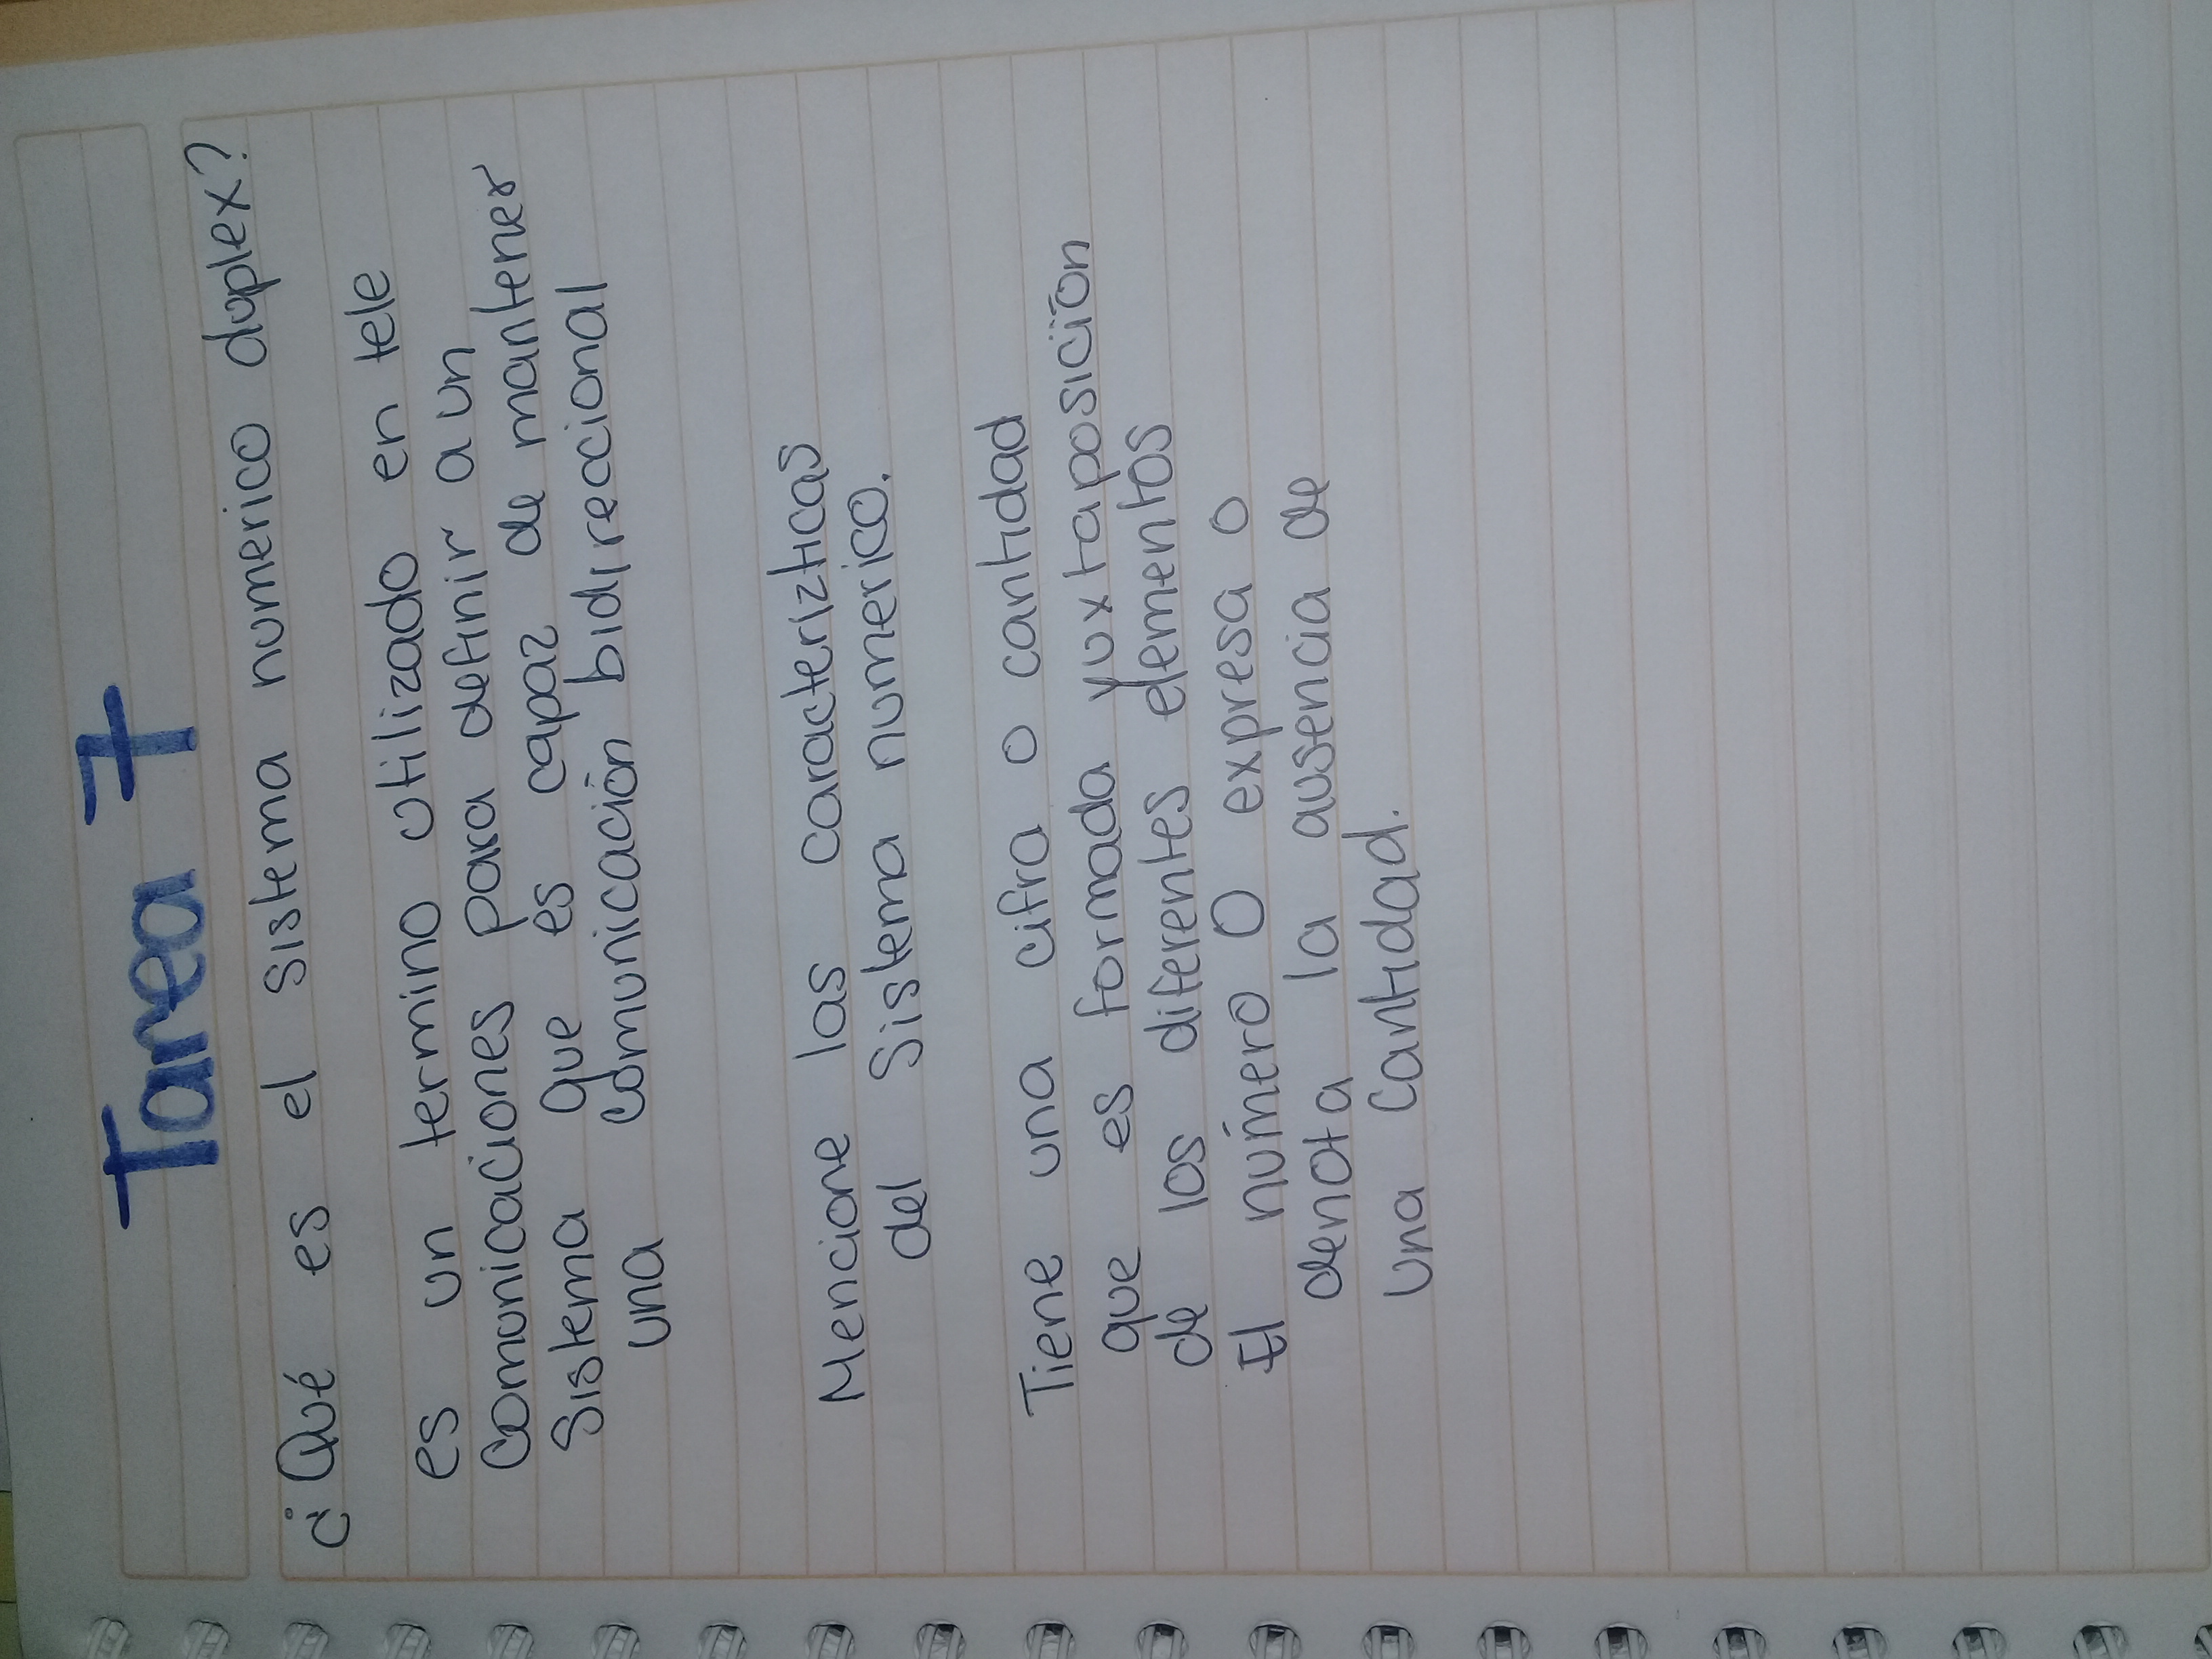 Tarea 7
¿Qué es el Sistema numerico duplex?
es un termino utilizado en tele
comunicaciones para definir a un
Sistema que es capaz de mantener
una comunicación bidireccional
Mencione las caracterizticas
del Sistema numerico.
Tiene una cifra o cantidad
que es formada yuxtaposición
de los diferentes elementos
El número 0 expresa o
denota la ausencia de
una Cantidad.